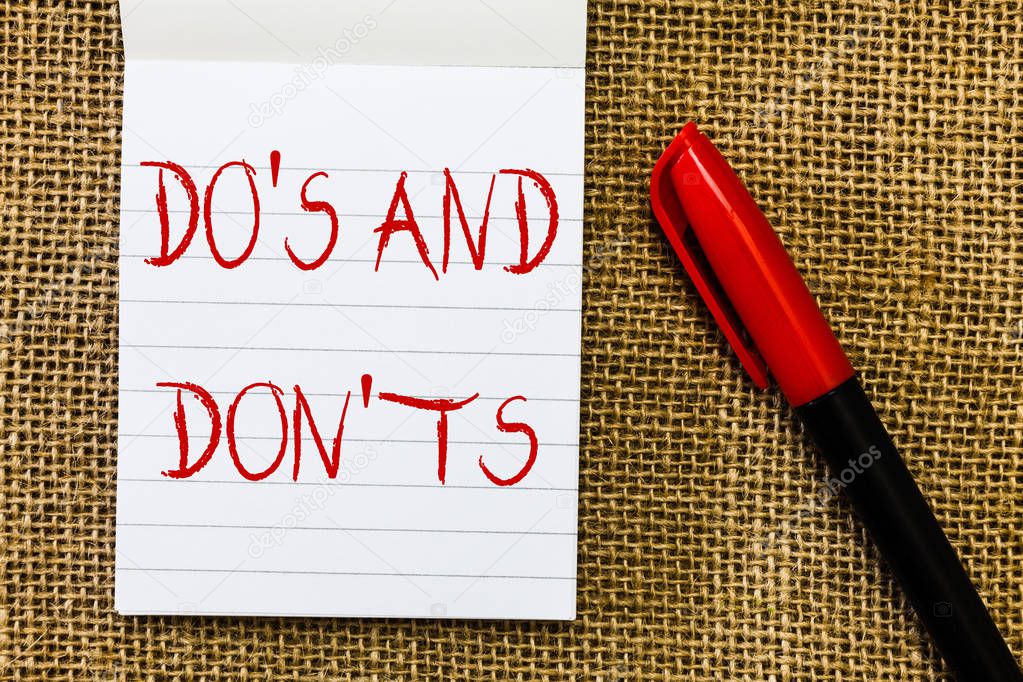 DO'S AND
DON'TS
depositphotos
depositphotos
depositphotos
depositphotos